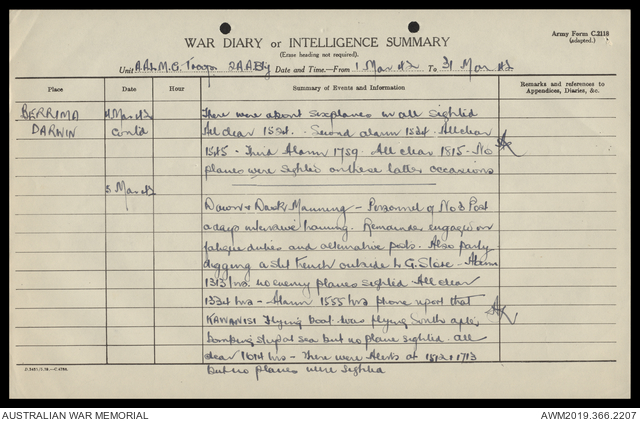 Army Form C.2118
(adapted.)
WAR DIARY or INTELLIGENCE SUMMARY
(Erase heading not required).
Unit A.A.L.M.G. Troop 2 A.A. Bty Date and Time.—From 1 Mar 42 To 31 Mar 42
Place Date Hour Summary of Events and Information Remarks and references to Appendices, Diaries, &c.
BERRIMA 4 Mar 42 There were about six planes in all sighted
DARWIN Contd All clear 1521. Second alarm 1534. All clear
1545 - Third Alarm 1759. All clear 1815 - No
planes were sighted on these latter occasions
5 Mar 42
Dawn & Dusk Manning - Personnel of No 3 Post
a days intensive training. Remainder engaged on
fatigue duties and alternative posts. Also party
digging a slit trench outside G. Store - Alarm
1313 hrs. no enemy planes sighted All clear
1334 hrs - Alarm 1555 hrs phone report that
KAWANISI Flying boat was flying South after
bombing ship at sea but no plane sighted. All
clear 1614 hrs - There were Alerts at 1512 & 1713
but no planes were sighted
AUSTRALIAN WAR MEMORIAL
AWM2019.366.2207